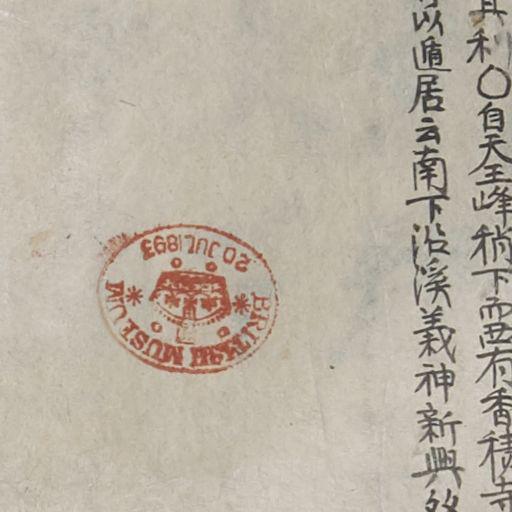 其利〇自天王峰稍下而西有香積寺
以遁居云南下沿溪義神新興
BRITISH MUSEUM
20 JUL 1893